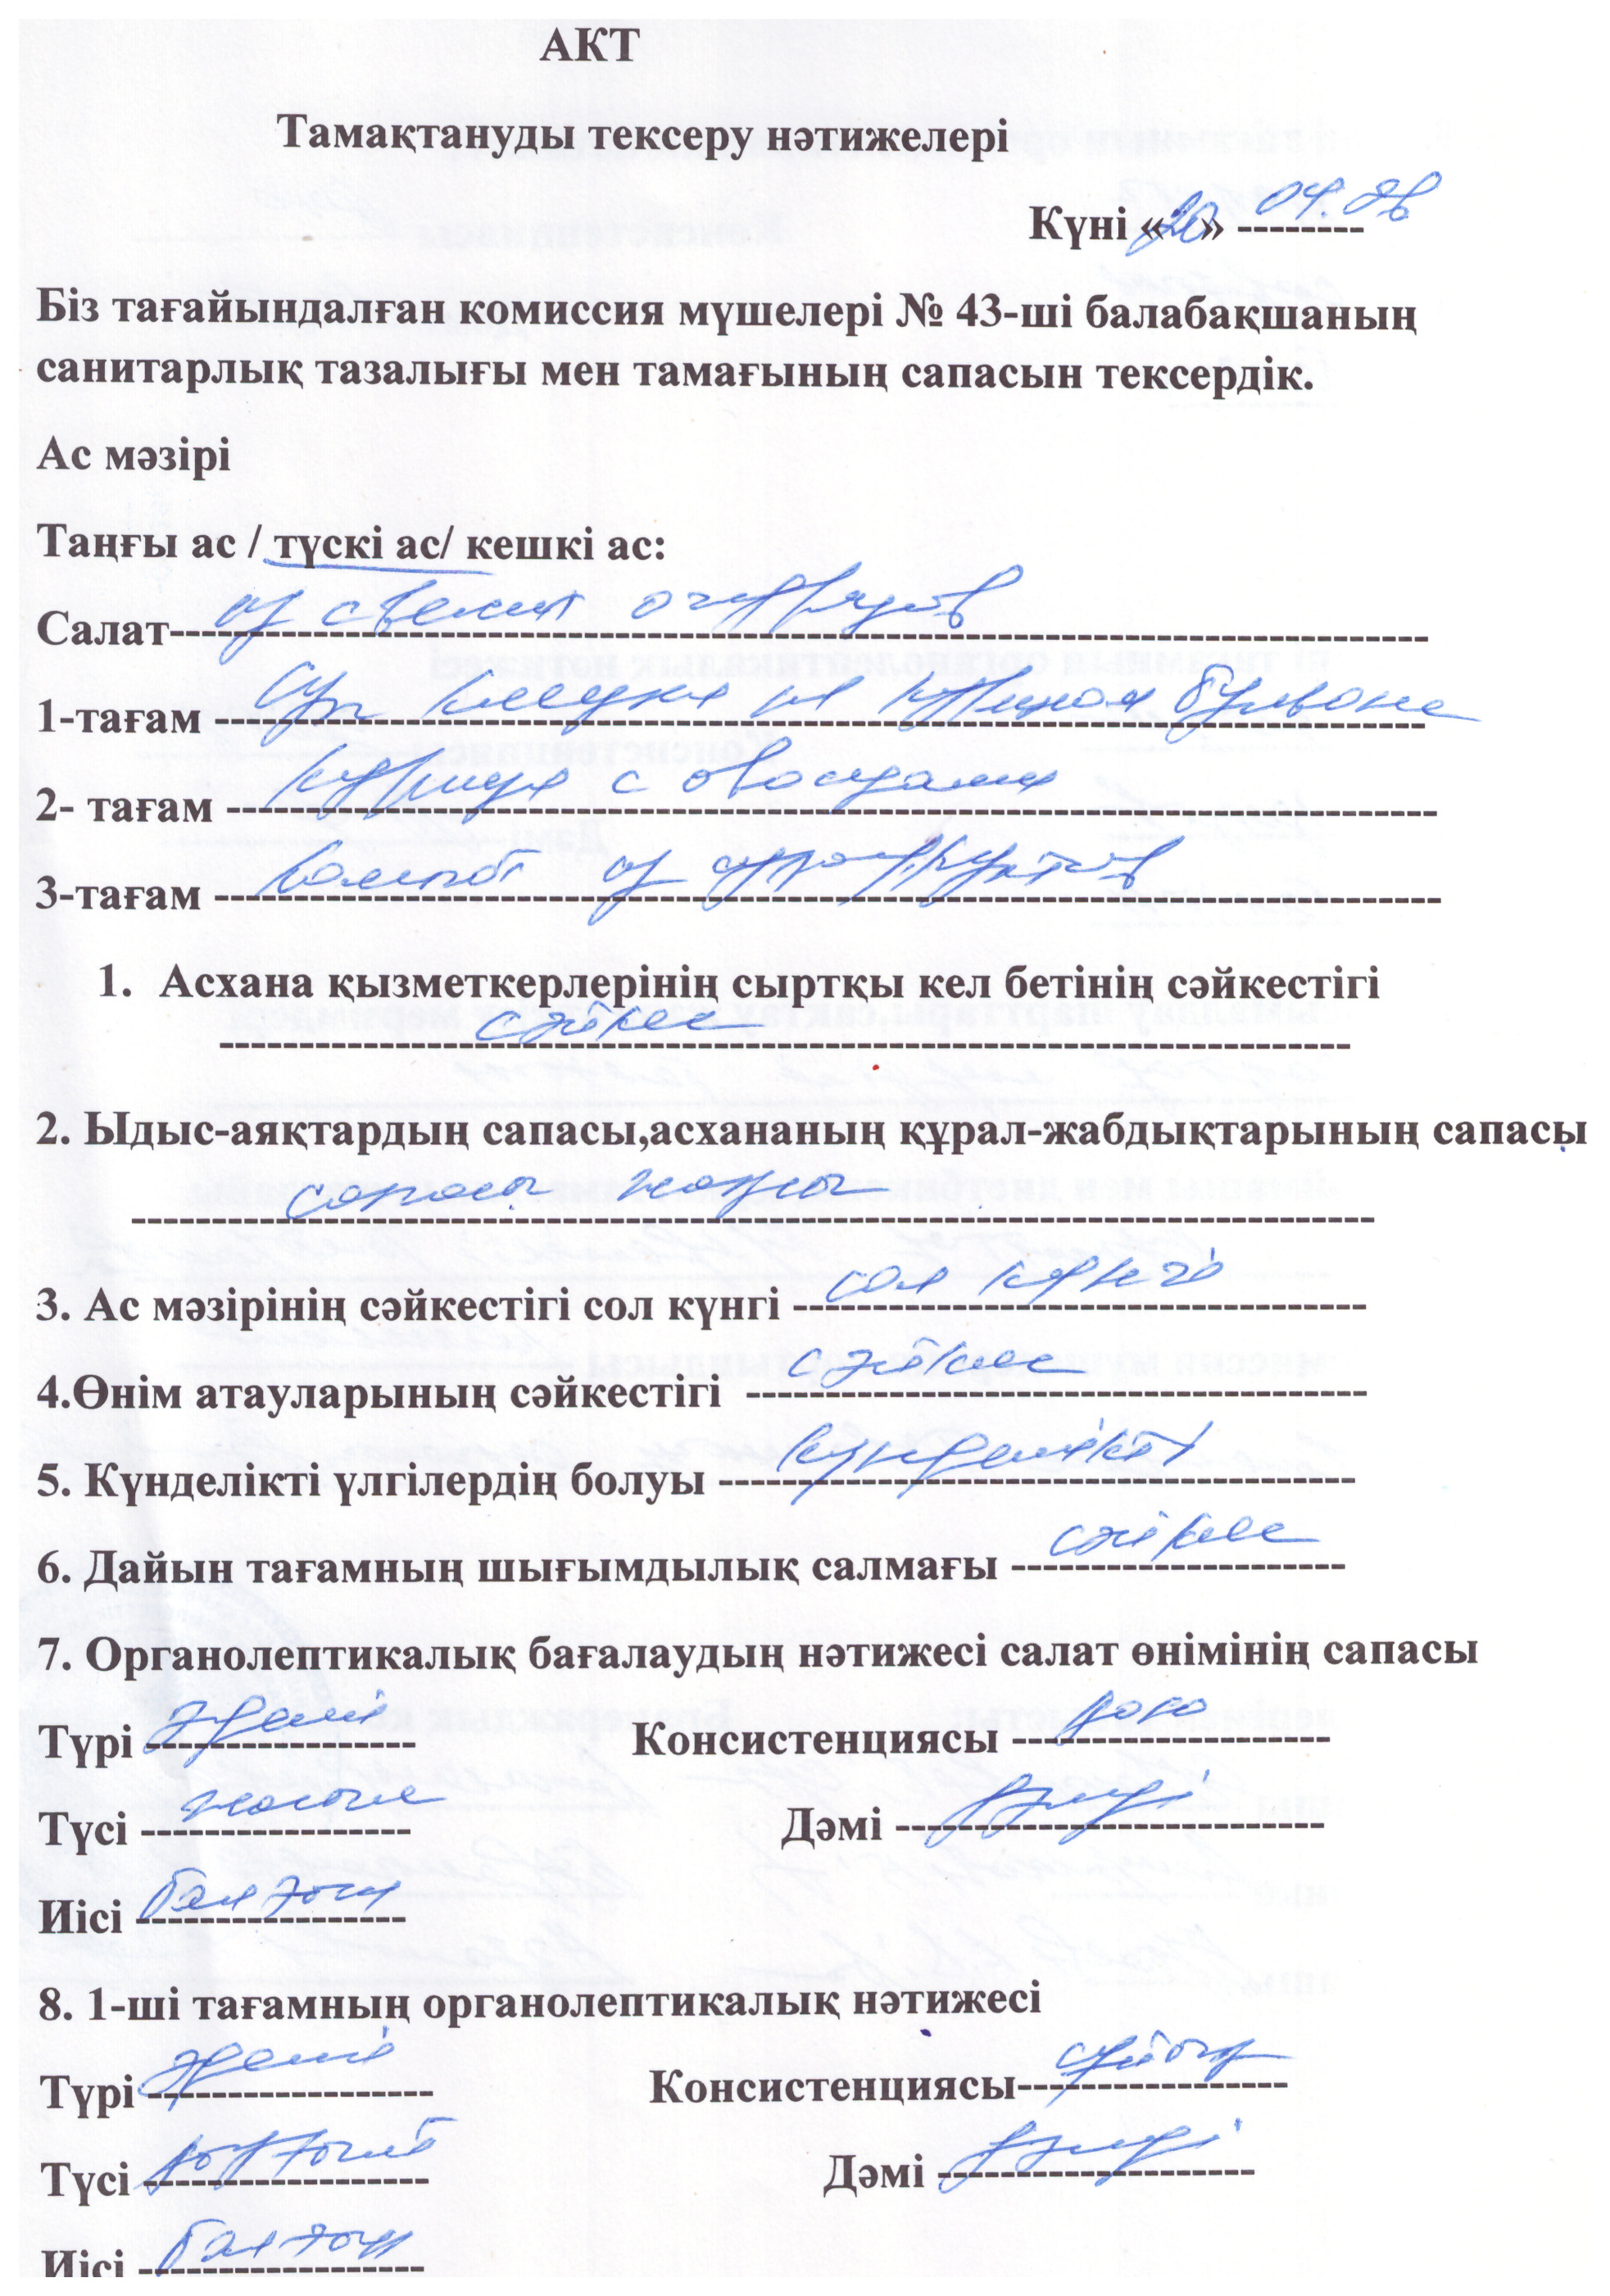 АКТ
Тамақтануды тексеру нәтижелері
Күні «20» -------- 04.
Біз тағайындалған комиссия мүшелері № 43-ші балабақшаның
санитарлық тазалығы мен тамағының сапасын тексердік.
Ас мәзірі
Таңғы ас / түскі ас/ кешкі ас:
Салат из свежих огурцов
1-тағам Суп на курином бульоне
2- тағам курица с овощами
3-тағам компот из сухофруктов
1. Асхана қызметкерлерінің сыртқы кел бетінің сәйкестігі
сәйкес
2. Ыдыс-аяқтардың сапасы,асхананың құрал-жабдықтарының сапасы
сапасы жақсы
3. Ас мәзірінің сәйкестігі сол күнгі сол күнгі
4.Өнім атауларының сәйкестігі сәйкес
5. Күнделікті үлгілердің болуы күнделікті
6. Дайын тағамның шығымдылық салмағы сәйкес
7. Органолептикалық бағалаудың нәтижесі салат өнімінің сапасы
Түрі әдемі Консистенциясы
Түсі жасыл Дәмі дәмді
Иісі балғын
8. 1-ші тағамның органолептикалық нәтижесі
Түрі әдемі Консистенциясы сұйық
Түсі Дәмі дәмді
Иісі балғын